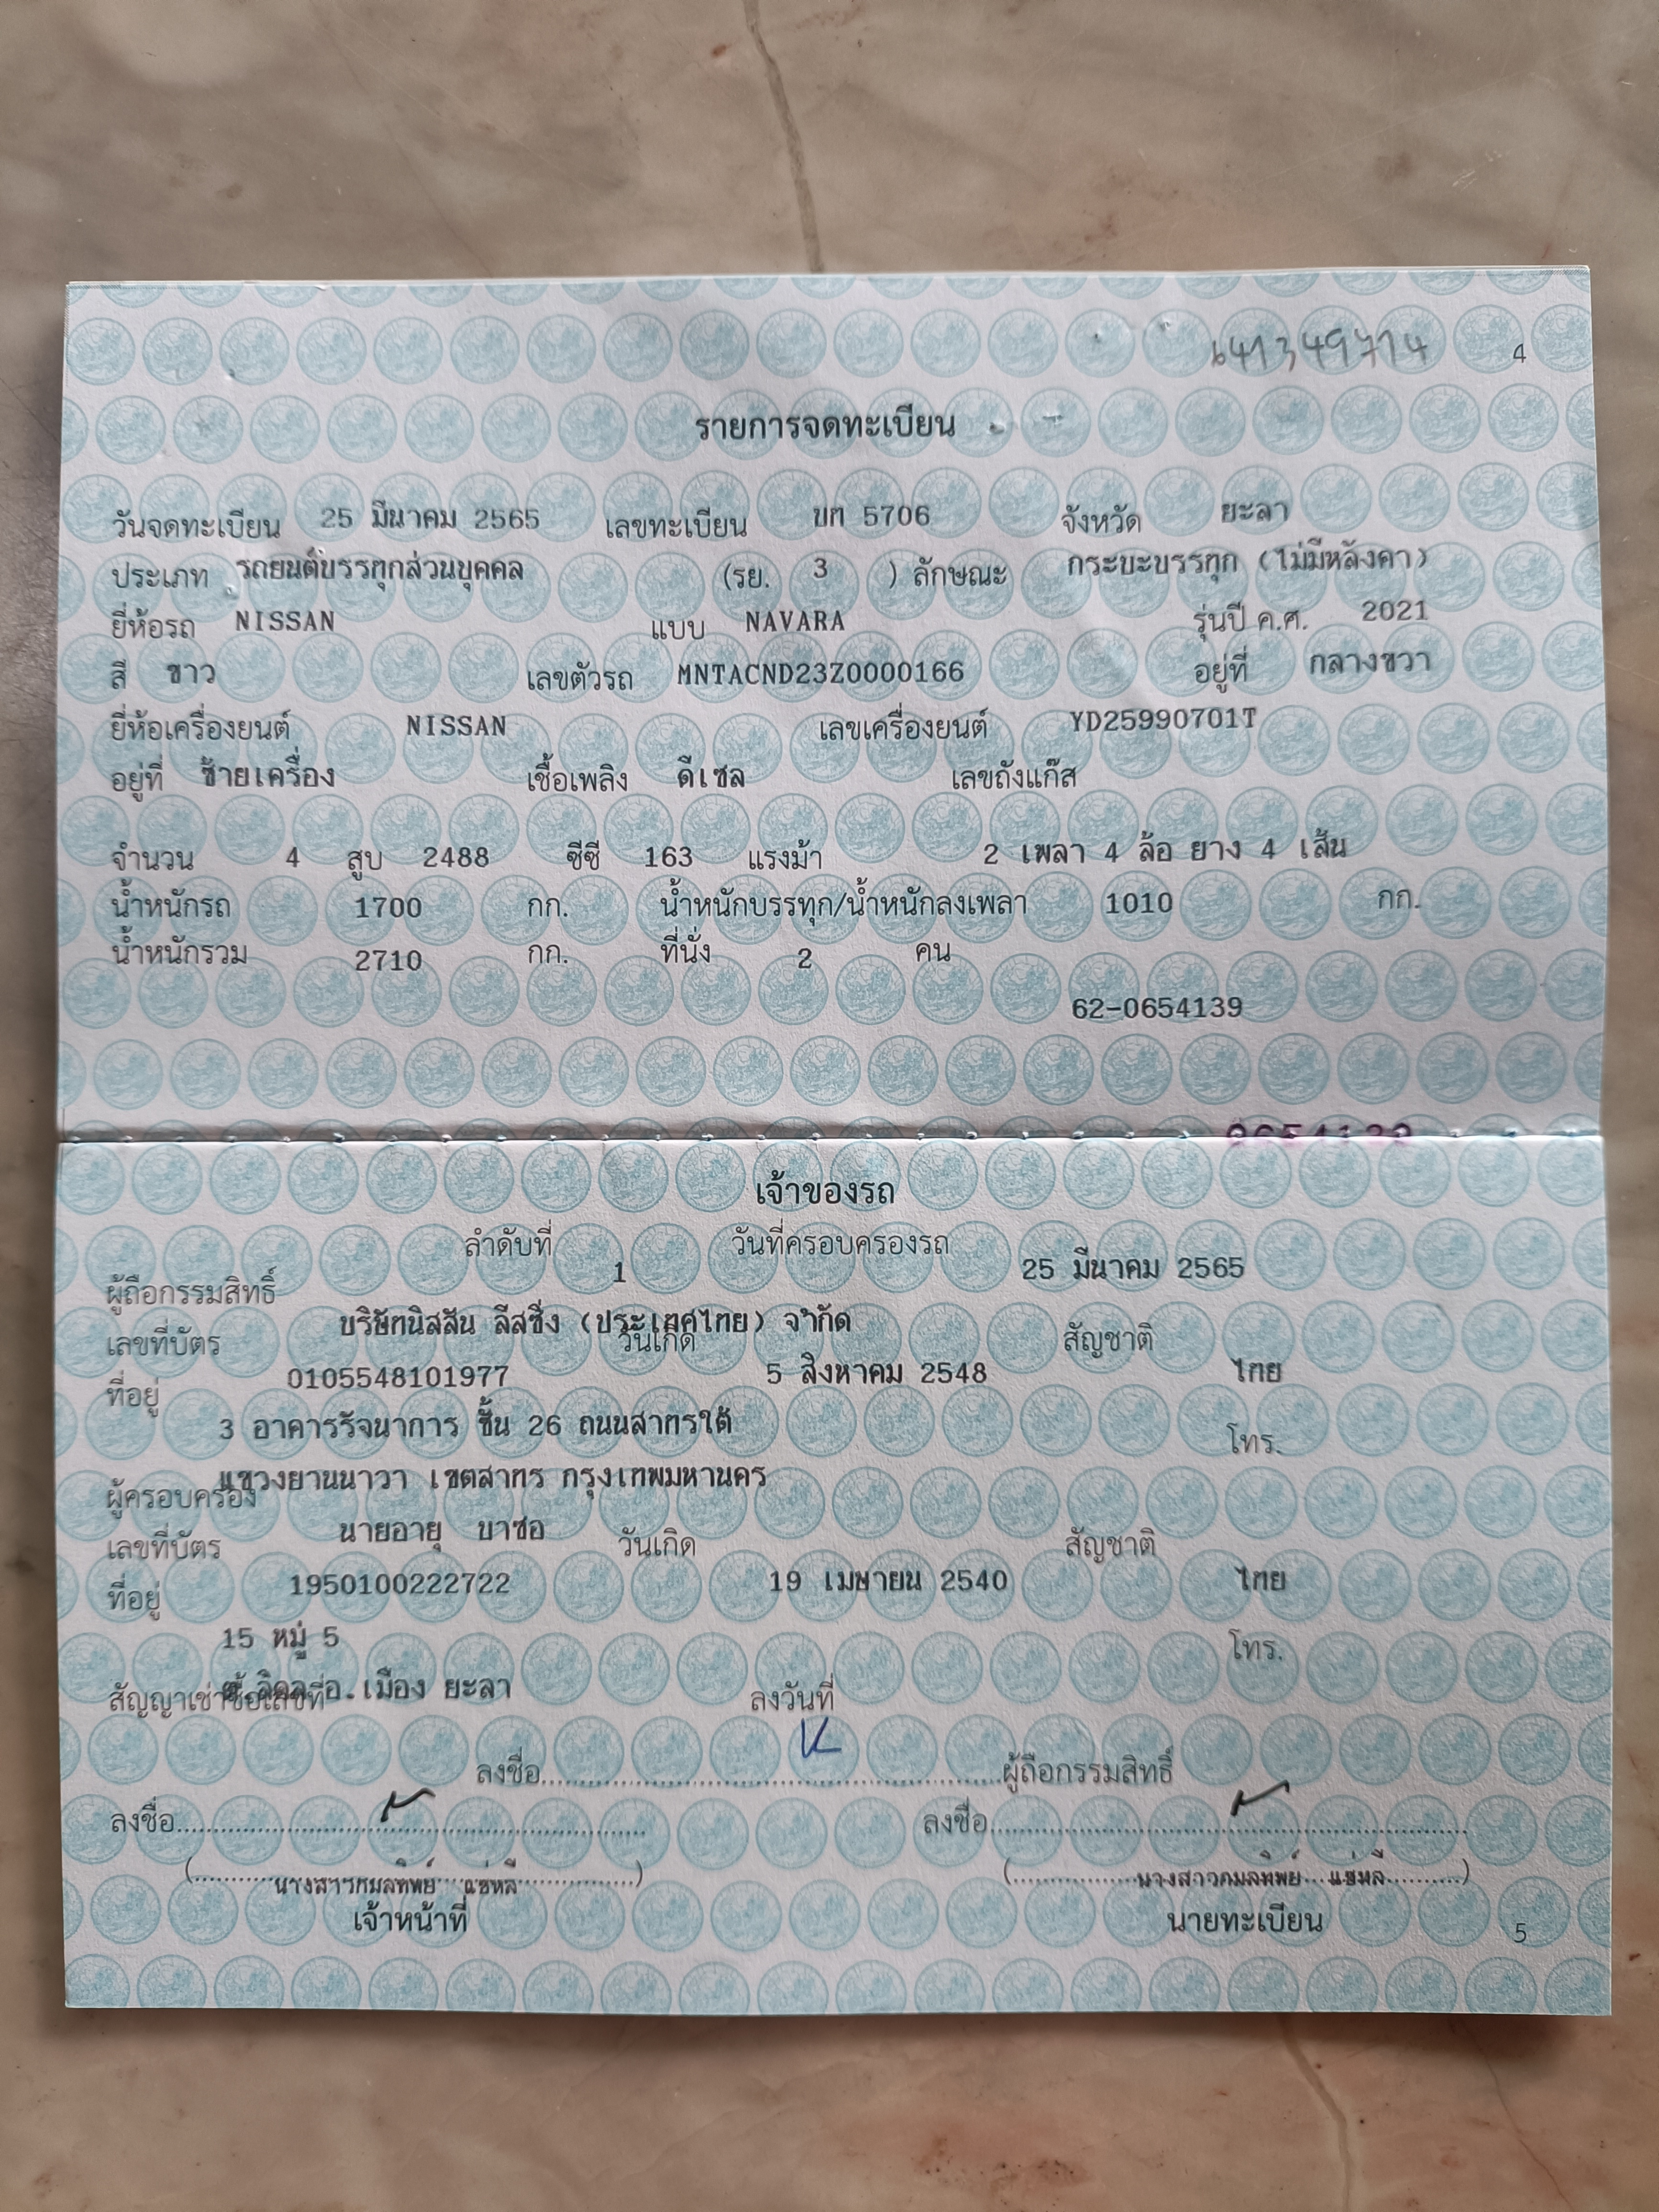 641349714
4
รายการจดทะเบียน
วันจดทะเบียน 25 มีนาคม 2565 เลขทะเบียน บท 5706 จังหวัด ยะลา
ประเภท รถยนต์บรรทุกส่วนบุคคล (รย. 3 ) ลักษณะ กระบะบรรทุก (ไม่มีหลังคา)
ยี่ห้อรถ NISSAN แบบ NAVARA รุ่นปี ค.ศ. 2021
สี ขาว เลขตัวรถ MNTACND23Z0000166 อยู่ที่ กลางขวา
ยี่ห้อเครื่องยนต์ NISSAN เลขเครื่องยนต์ YD25990701T
อยู่ที่ ซ้ายเครื่อง เชื้อเพลิง ดีเซล เลขถังแก๊ส
จำนวน 4 สูบ 2488 ซีซี 163 แรงม้า 2 เพลา 4 ล้อ ยาง 4 เส้น
น้ำหนักรถ 1700 กก. น้ำหนักบรรทุก/น้ำหนักลงเพลา 1010 กก.
น้ำหนักรวม 2710 กก. ที่นั่ง 2 คน
62-0654139
0654139
เจ้าของรถ
ลำดับที่ 1 วันที่ครอบครองรถ 25 มีนาคม 2565
ผู้ถือกรรมสิทธิ์ บริษัทนิสสัน ลีสซิ่ง (ประเทศไทย) จำกัด
เลขที่บัตร 0105548101977 วันเกิด 5 สิงหาคม 2548 สัญชาติ ไทย
ที่อยู่ 3 อาคารรัจนาการ ชั้น 26 ถนนสาทรใต้ โทร.
แขวงยานนาวา เขตสาทร กรุงเทพมหานคร
ผู้ครอบครอง นายอายุ บาซอ
เลขที่บัตร 1950100222722 วันเกิด 19 เมษายน 2540 สัญชาติ ไทย
ที่อยู่ 15 หมู่ 5 โทร.
อ.เมือง ยะลา
สัญญาเช่าซื้อเลขที่ ลงวันที่
ลงชื่อ ผู้ถือกรรมสิทธิ์
ลงชื่อ ลงชื่อ
(นางสาวกมลทิพย์ แซ่หลี) (นางสาวกมลทิพย์ แซ่หลี)
เจ้าหน้าที่ นายทะเบียน
5